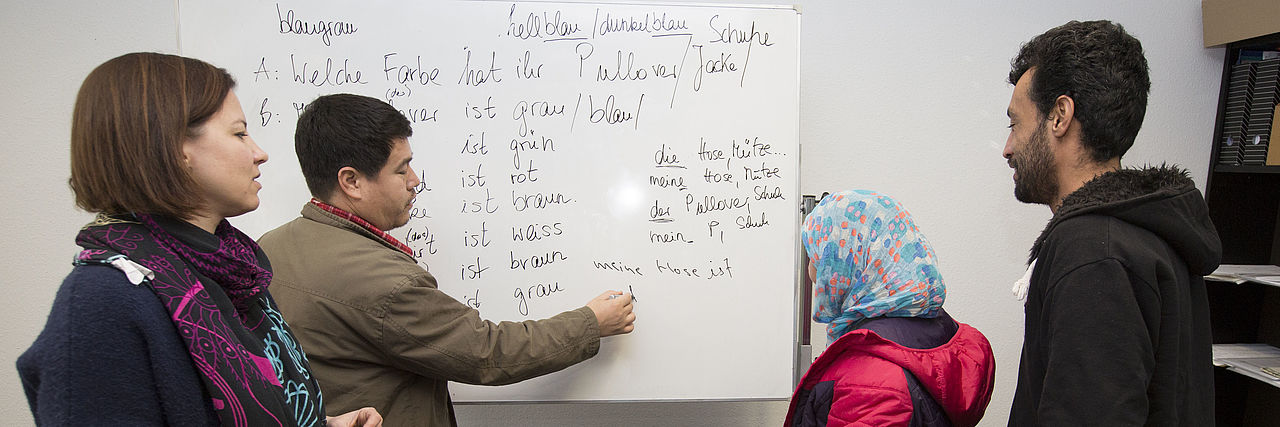 blaugrau hellblau/dunkelblau Schuhe
A: Welche Farbe hat ihr Pullover/Jacke/
B: ist grau/blau/
(das)
ist grün
ist rot
ist braun.
(das) ist weiss
ist braun
ist grau
die Hose, Mütze...
meine Hose, Mütze
der Pullover, Schuh
mein_ P, Schuh
meine Hose ist